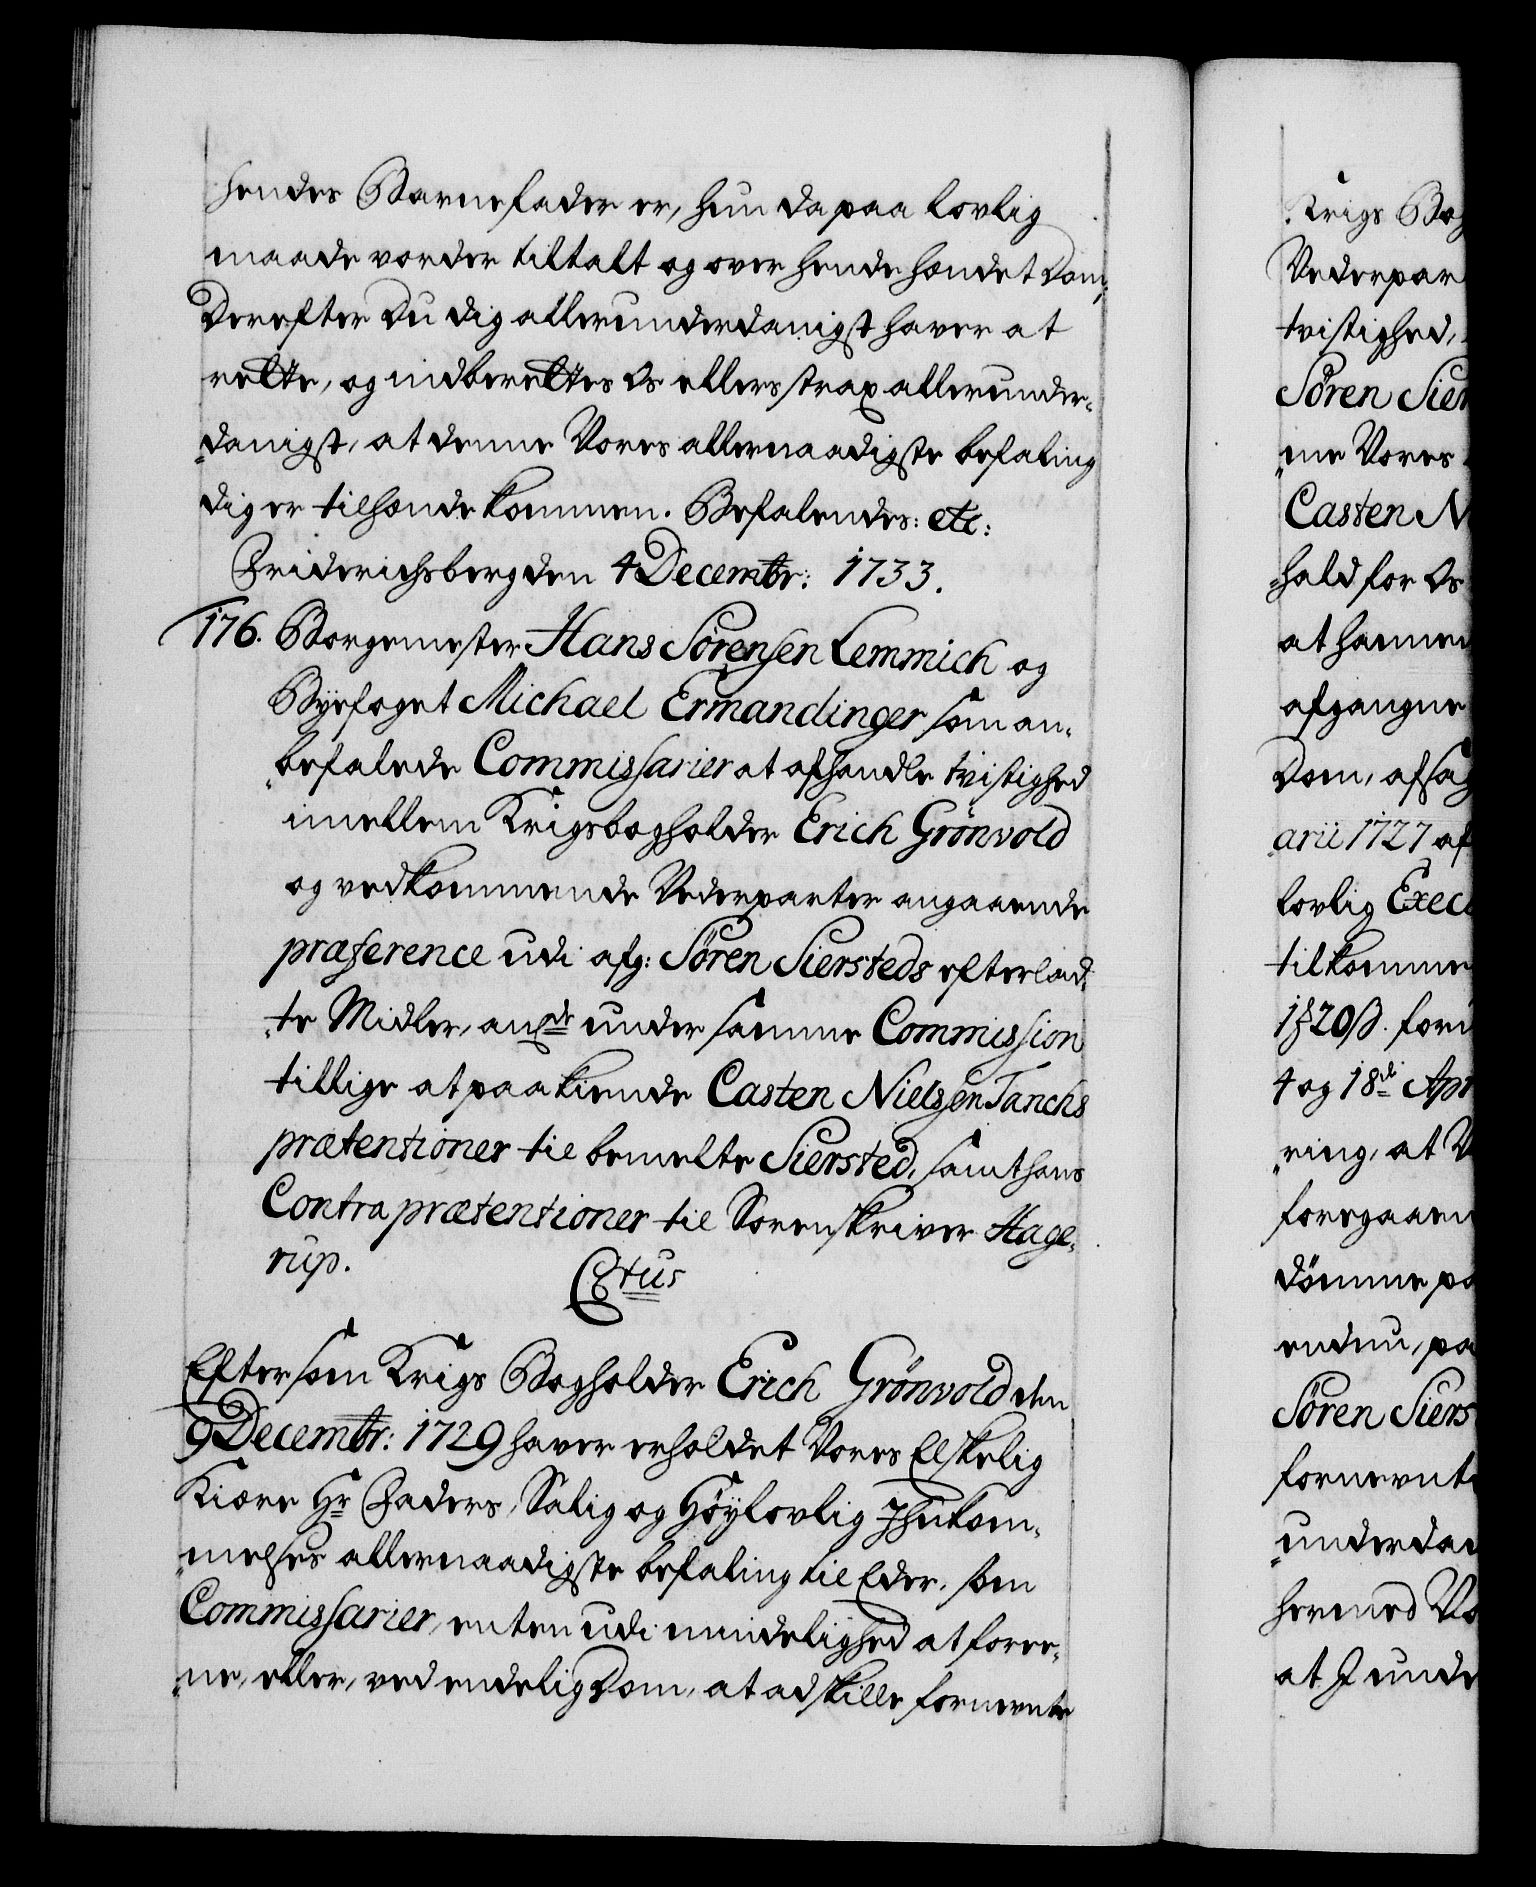 hendes Barnefader er, hun da paa lovlig
maade vorder tiltalt og over hende hendet Dom,
Derefter Du dig allerunderdanigst haver at
rette, og indberettes Os ellers strax allerunder-
danigst, at denne Vores allernaadigste befaling
dig er tilhænde kommen. Befalendes: etc:
Friderichsberg den 4 Decembr: 1733.
176. Borgemester Hans Sørensen Lemmich og
Byefoget Michael Ermandinger som an-
befalede Commissarier at afhandle tvistighed
imellem Krigsbogholder Erich Grönvold
og vedkommende Vederparter angaaende
præference udi afg: Sören Siersteds efterlad-
te Midler, anlde under samme Commission
tillige at paakiende Casten Nielssen Tanchs
prætentioner til bemelte Siersted, samt hans
Contra prætentioner til Sorenskriver Hage-
rup.
C6tus
Eftersom Krigs Bogholder Erich Grönvold den
9 Decembr: 1729 haver erholdet Vores Elskelig
Kiære Hr Faders, Salig og Høylovlig Ihukom-
melses allernaadigste befaling til Eder, som
Commissarier, enten udi mindelighed at foree-
ne, eller, ved endelig Dom, at adskille fornevnte
Krigs Bog
Vederpar
tvistighed,
Sören Sier
ne Vores
Casten N
hold for Os
at hannem
afgangne
Dom, afsag
arii 1727 af
lovlig Exec
tilkomme
4 og 18de Apr
ring, at V
foregaaen
dömme pa
endnu, pa
Sören Siers
fornevnt
underdan
hermed Vo
at I unde